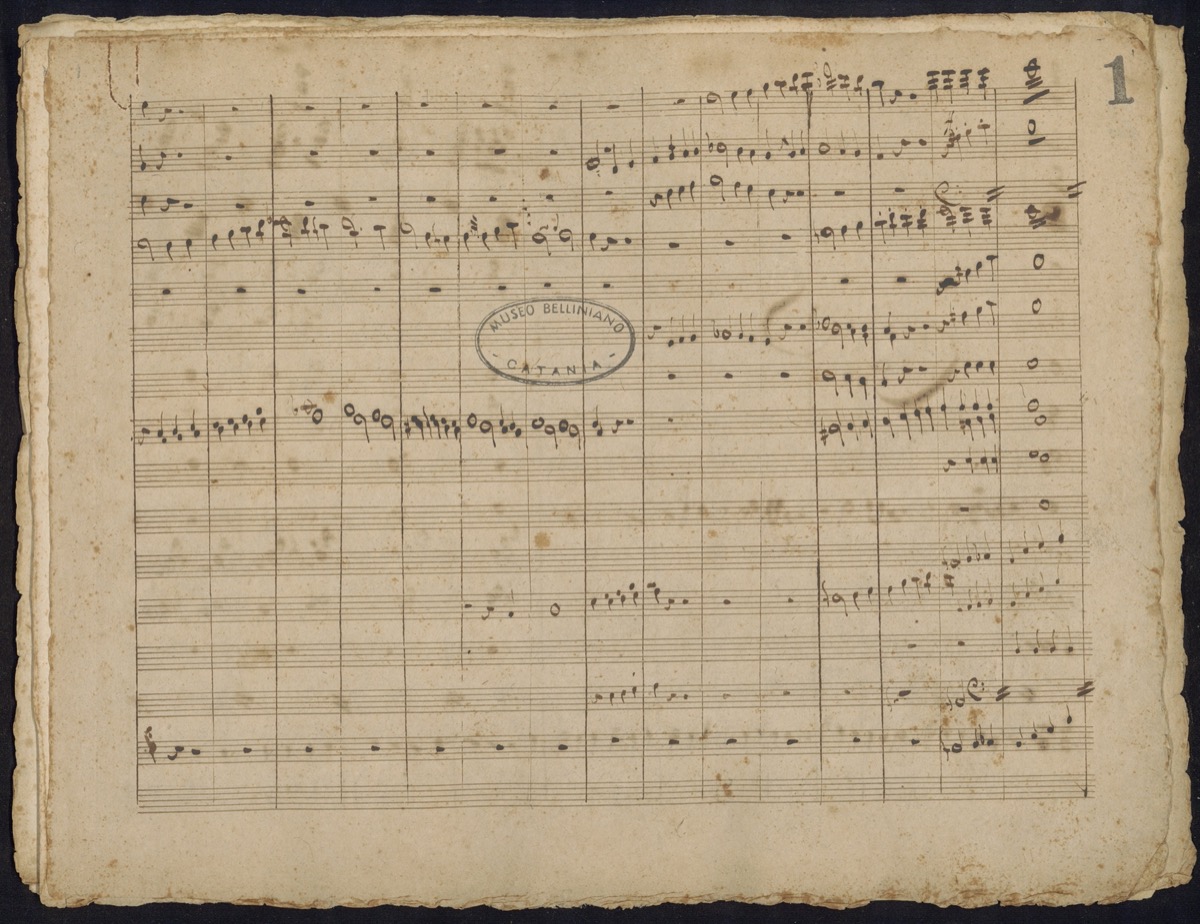 1
MUSEO BELLINIANO
- CATANIA -